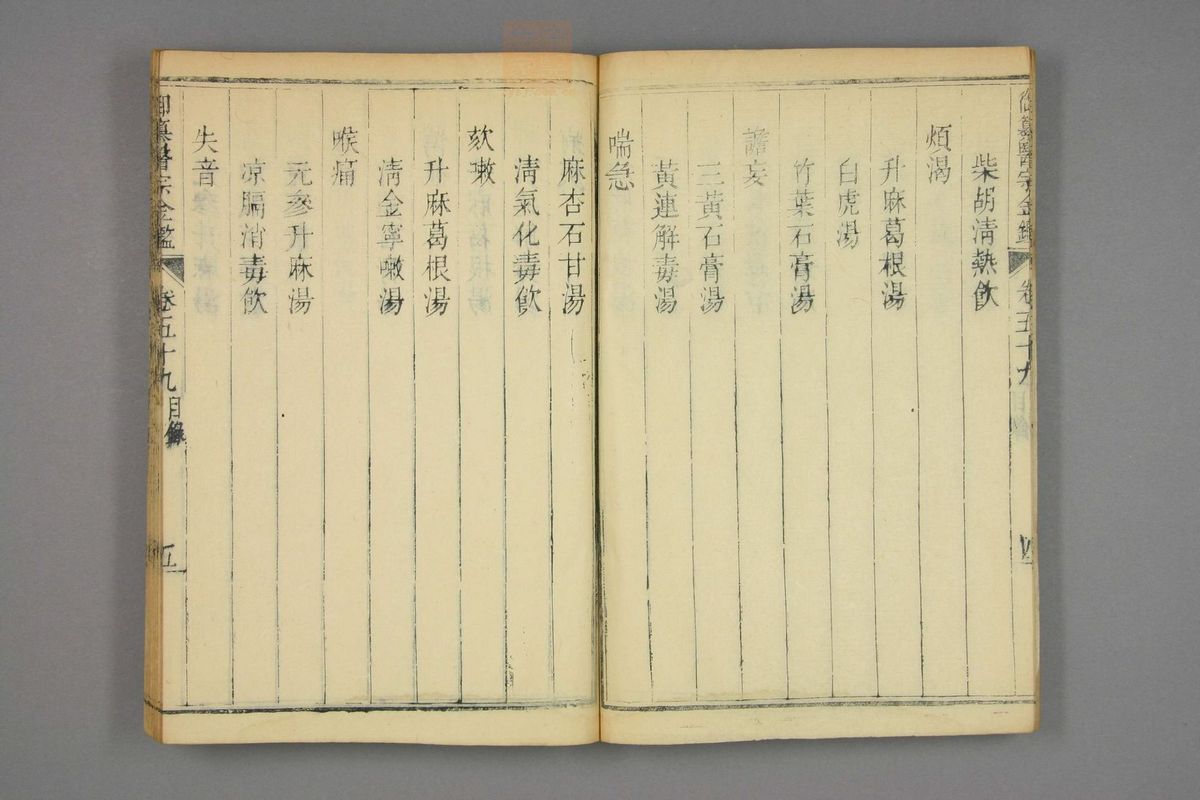 御纂醫宗金鑑 卷五十九 目錄 四
柴胡清熱飲
煩渴
升麻葛根湯
白虎湯
竹葉石膏湯
譫妄
三黃石膏湯
黃連解毒湯
喘急
麻杏石甘湯
清氣化毒飲
欬嗽
升麻葛根湯
清金寧嗽湯
喉痛
元參升麻湯
凉膈消毒飲
失音
御纂醫宗金鑑 卷五十九 目錄 五